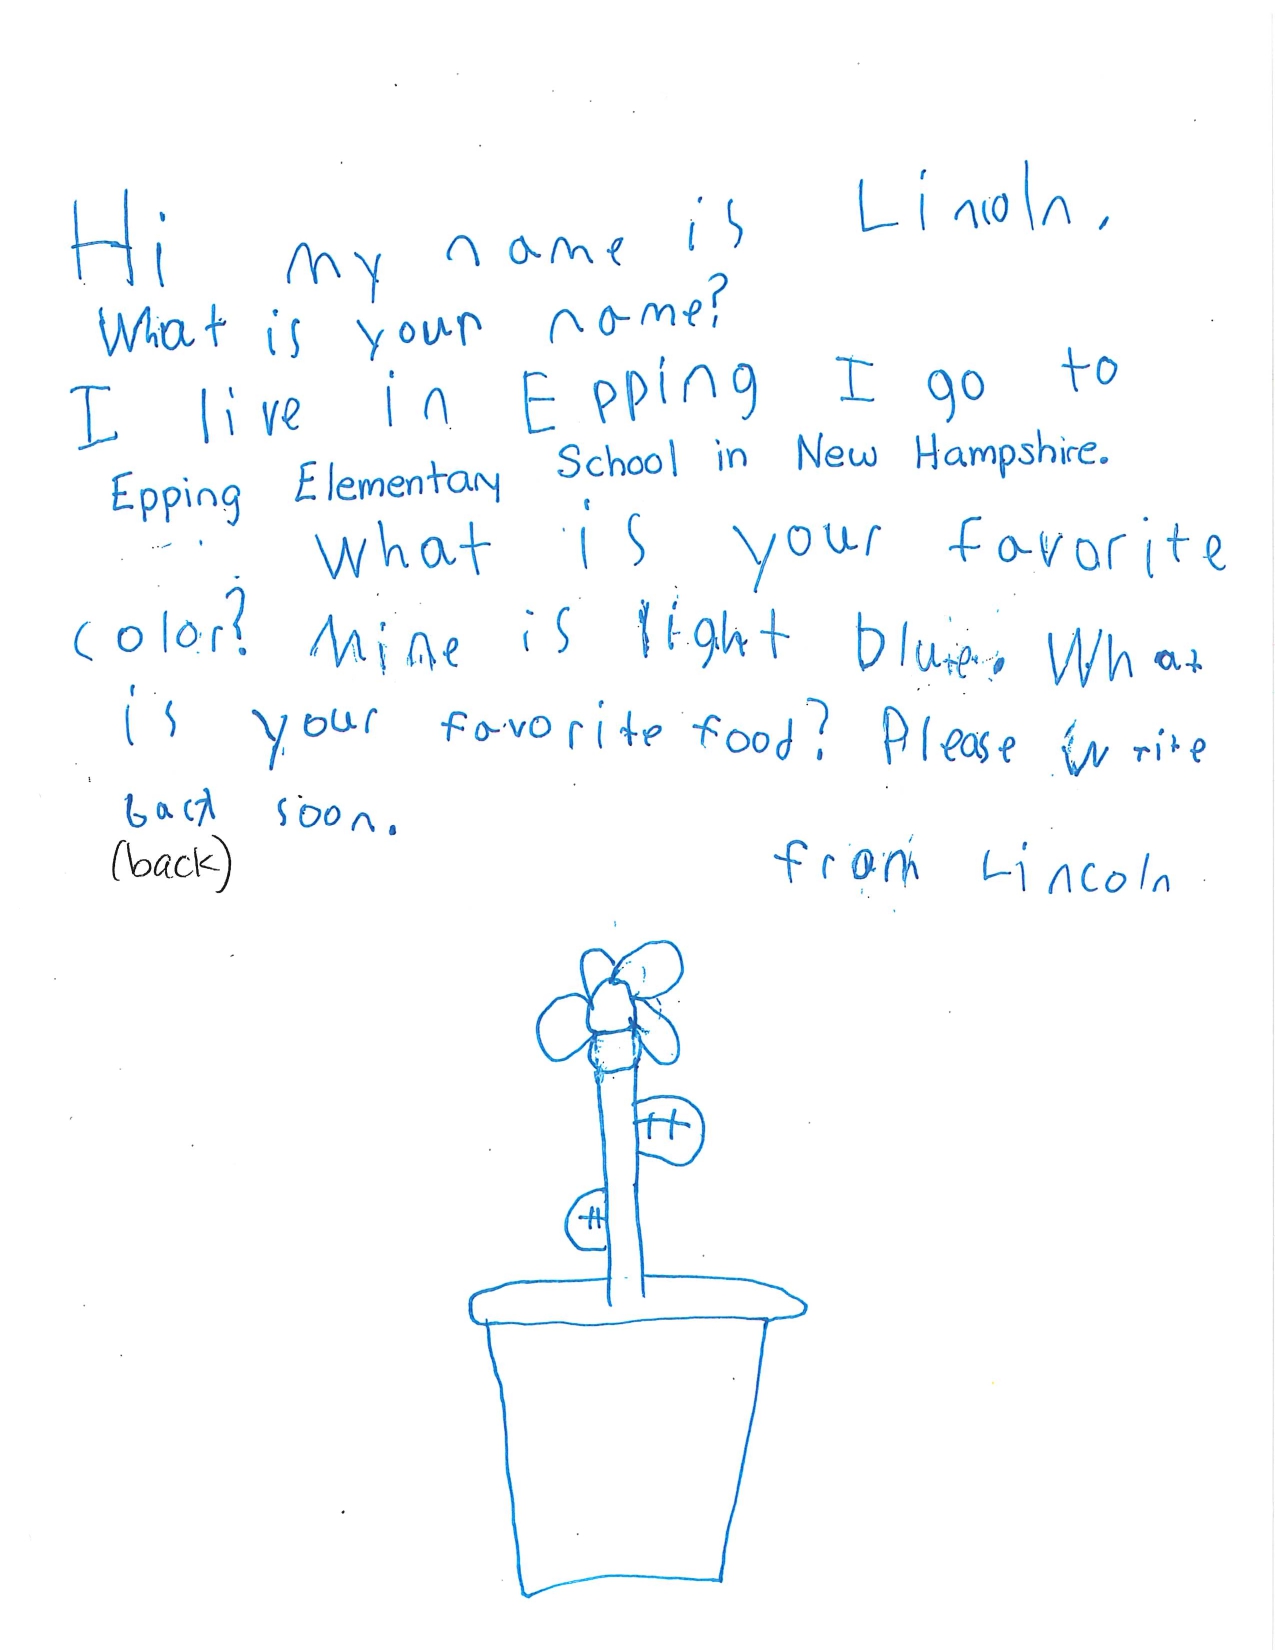 Hi my name is Lincoln.
What is your name?
I live in Epping I go to
Epping Elementary School in New Hampshire.
What is your favorite
color? Mine is light blue. What
is your favorite food? Please write
back soon.
(back)
from Lincoln